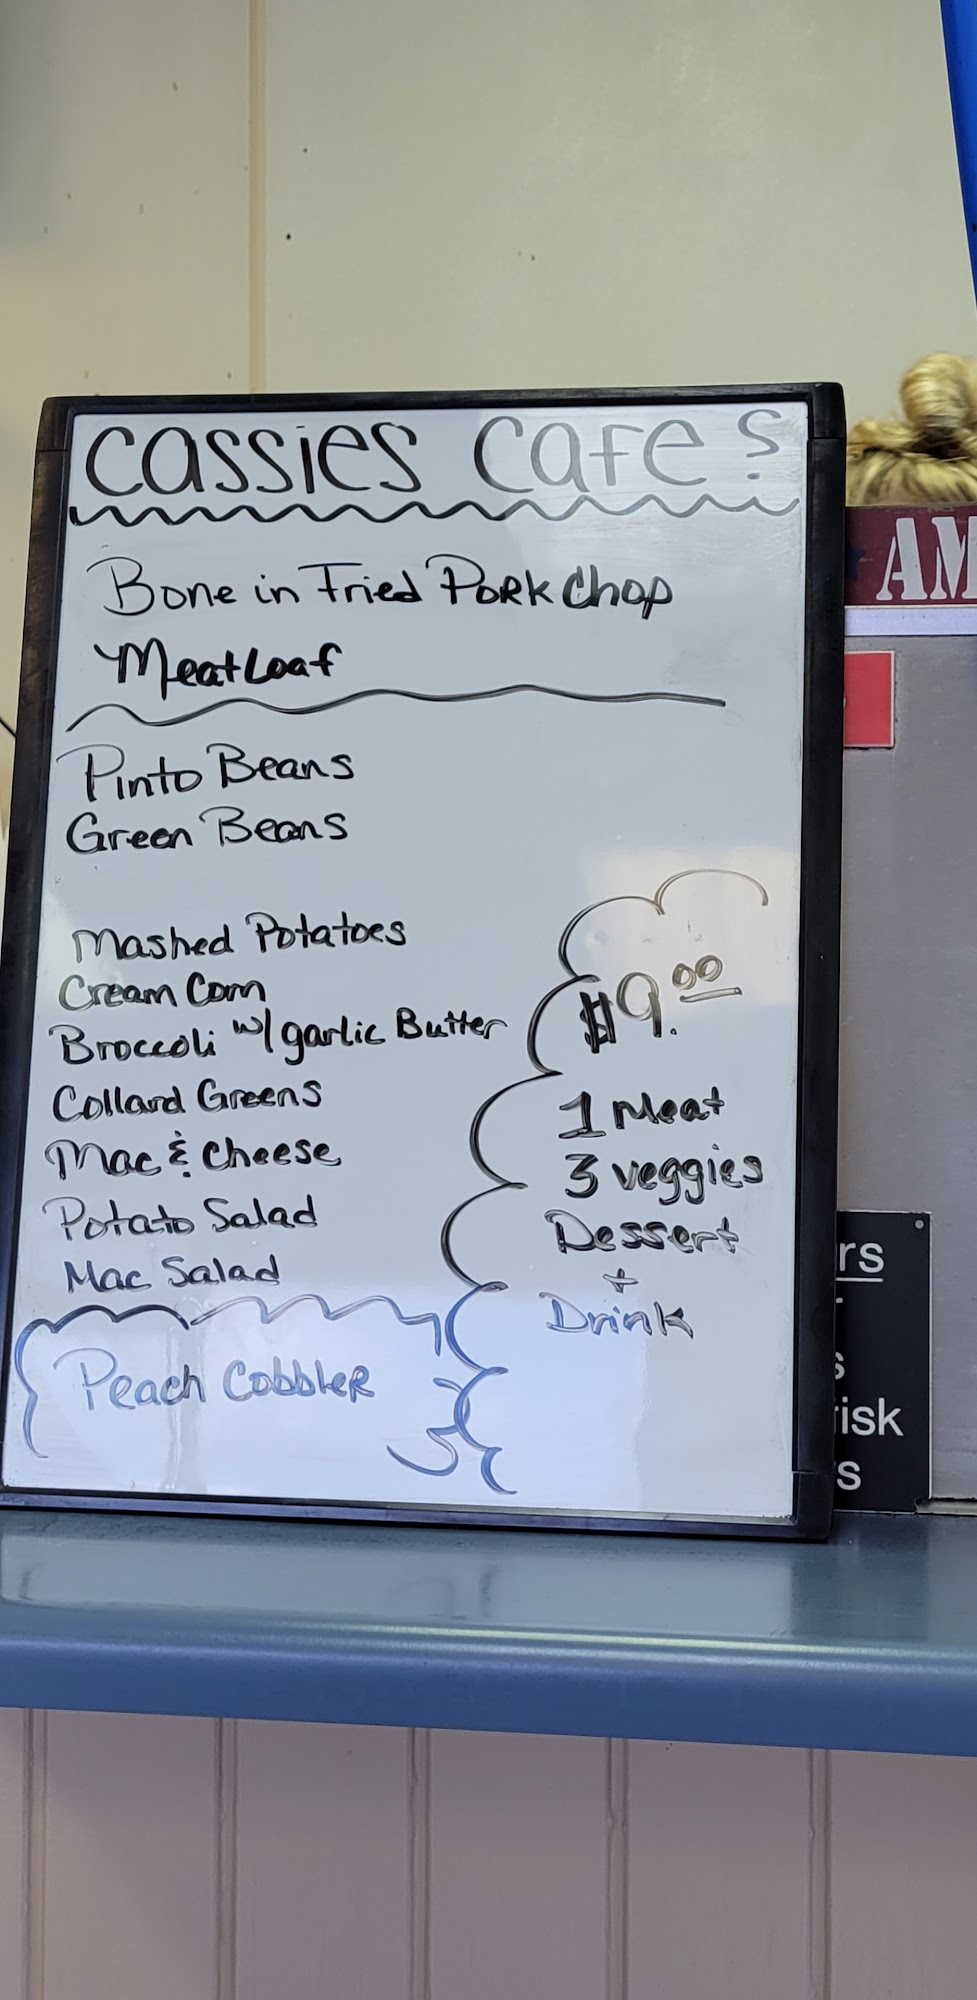 Cassies Cafe ?
Bone in Fried Pork Chop
Meat Loaf
Pinto Beans
Green Beans
Mashed Potatoes
Cream Corn
Broccoli w/ garlic Butter
Collard Greens
Mac & Cheese
Potato Salad
Mac Salad
Peach Cobbler
$9.00
1 Meat
3 veggies
Dessert
+
Drink
AM
rs
s
isk
s